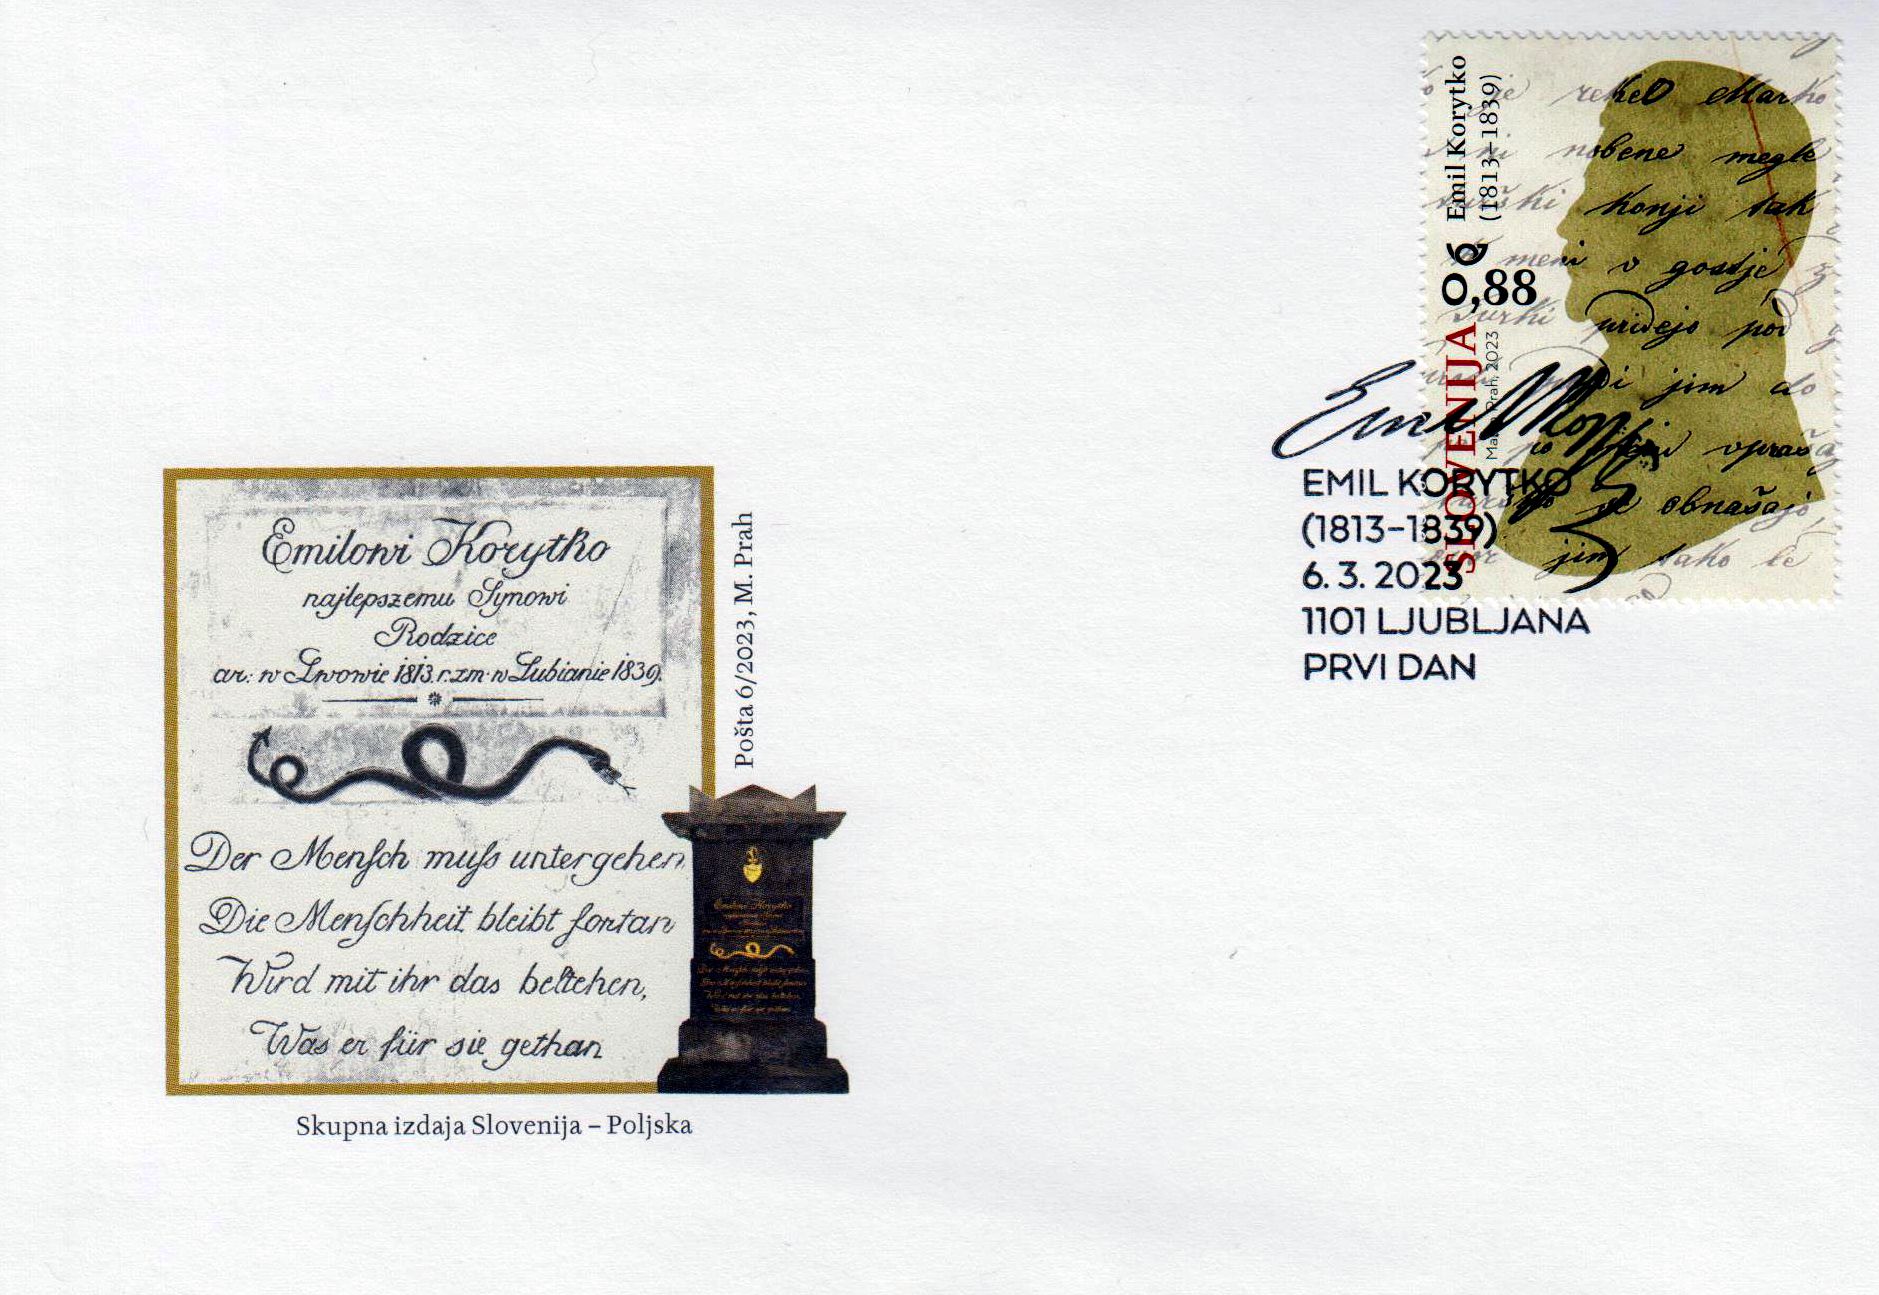 Emilowi Korytko
najlepszemu Synowi
Rodzice
ur: w Lwowie 1813. r. zm. w Lubianie 1839.
Der Menſch muſs untergehen,
Die Menſchheit bleibt fortan
Wird mit ihr das beſtehen,
Was er für sie gethan
Pošta 6/2023, M. Prah
Skupna izdaja Slovenija – Poljska
Emil Korytko
(1813–1839)
0,88
SLOVENIJA
Prah, 2023
je rekel Marko
ni nobene megle
turški konji tak
meni v gostje
Turki pridejo pod
jim do
vpraša
se obnašajo
jim tako le
EMIL KORYTKO
(1813–1839)
6. 3. 2023
1101 LJUBLJANA
PRVI DAN